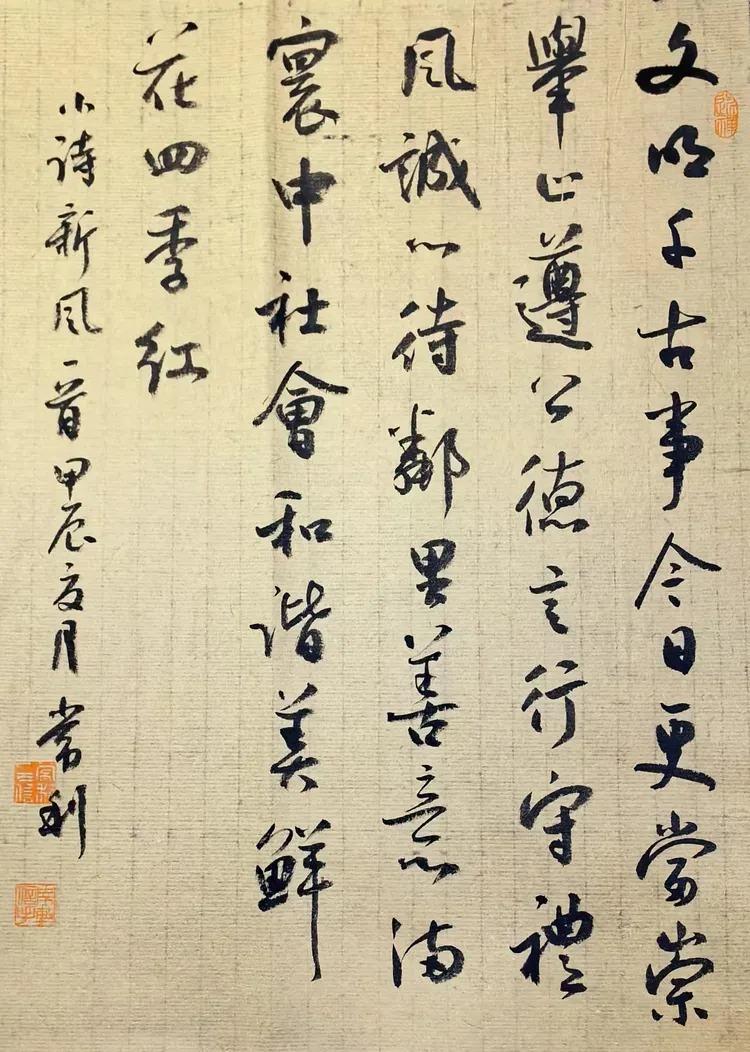 文明千古事今日更當崇
舉止遵公德言行守禮
風誠心待鄰里善意滿
寰中社會和諧美鮮
花四季紅
小詩新風一首甲辰夏月常利